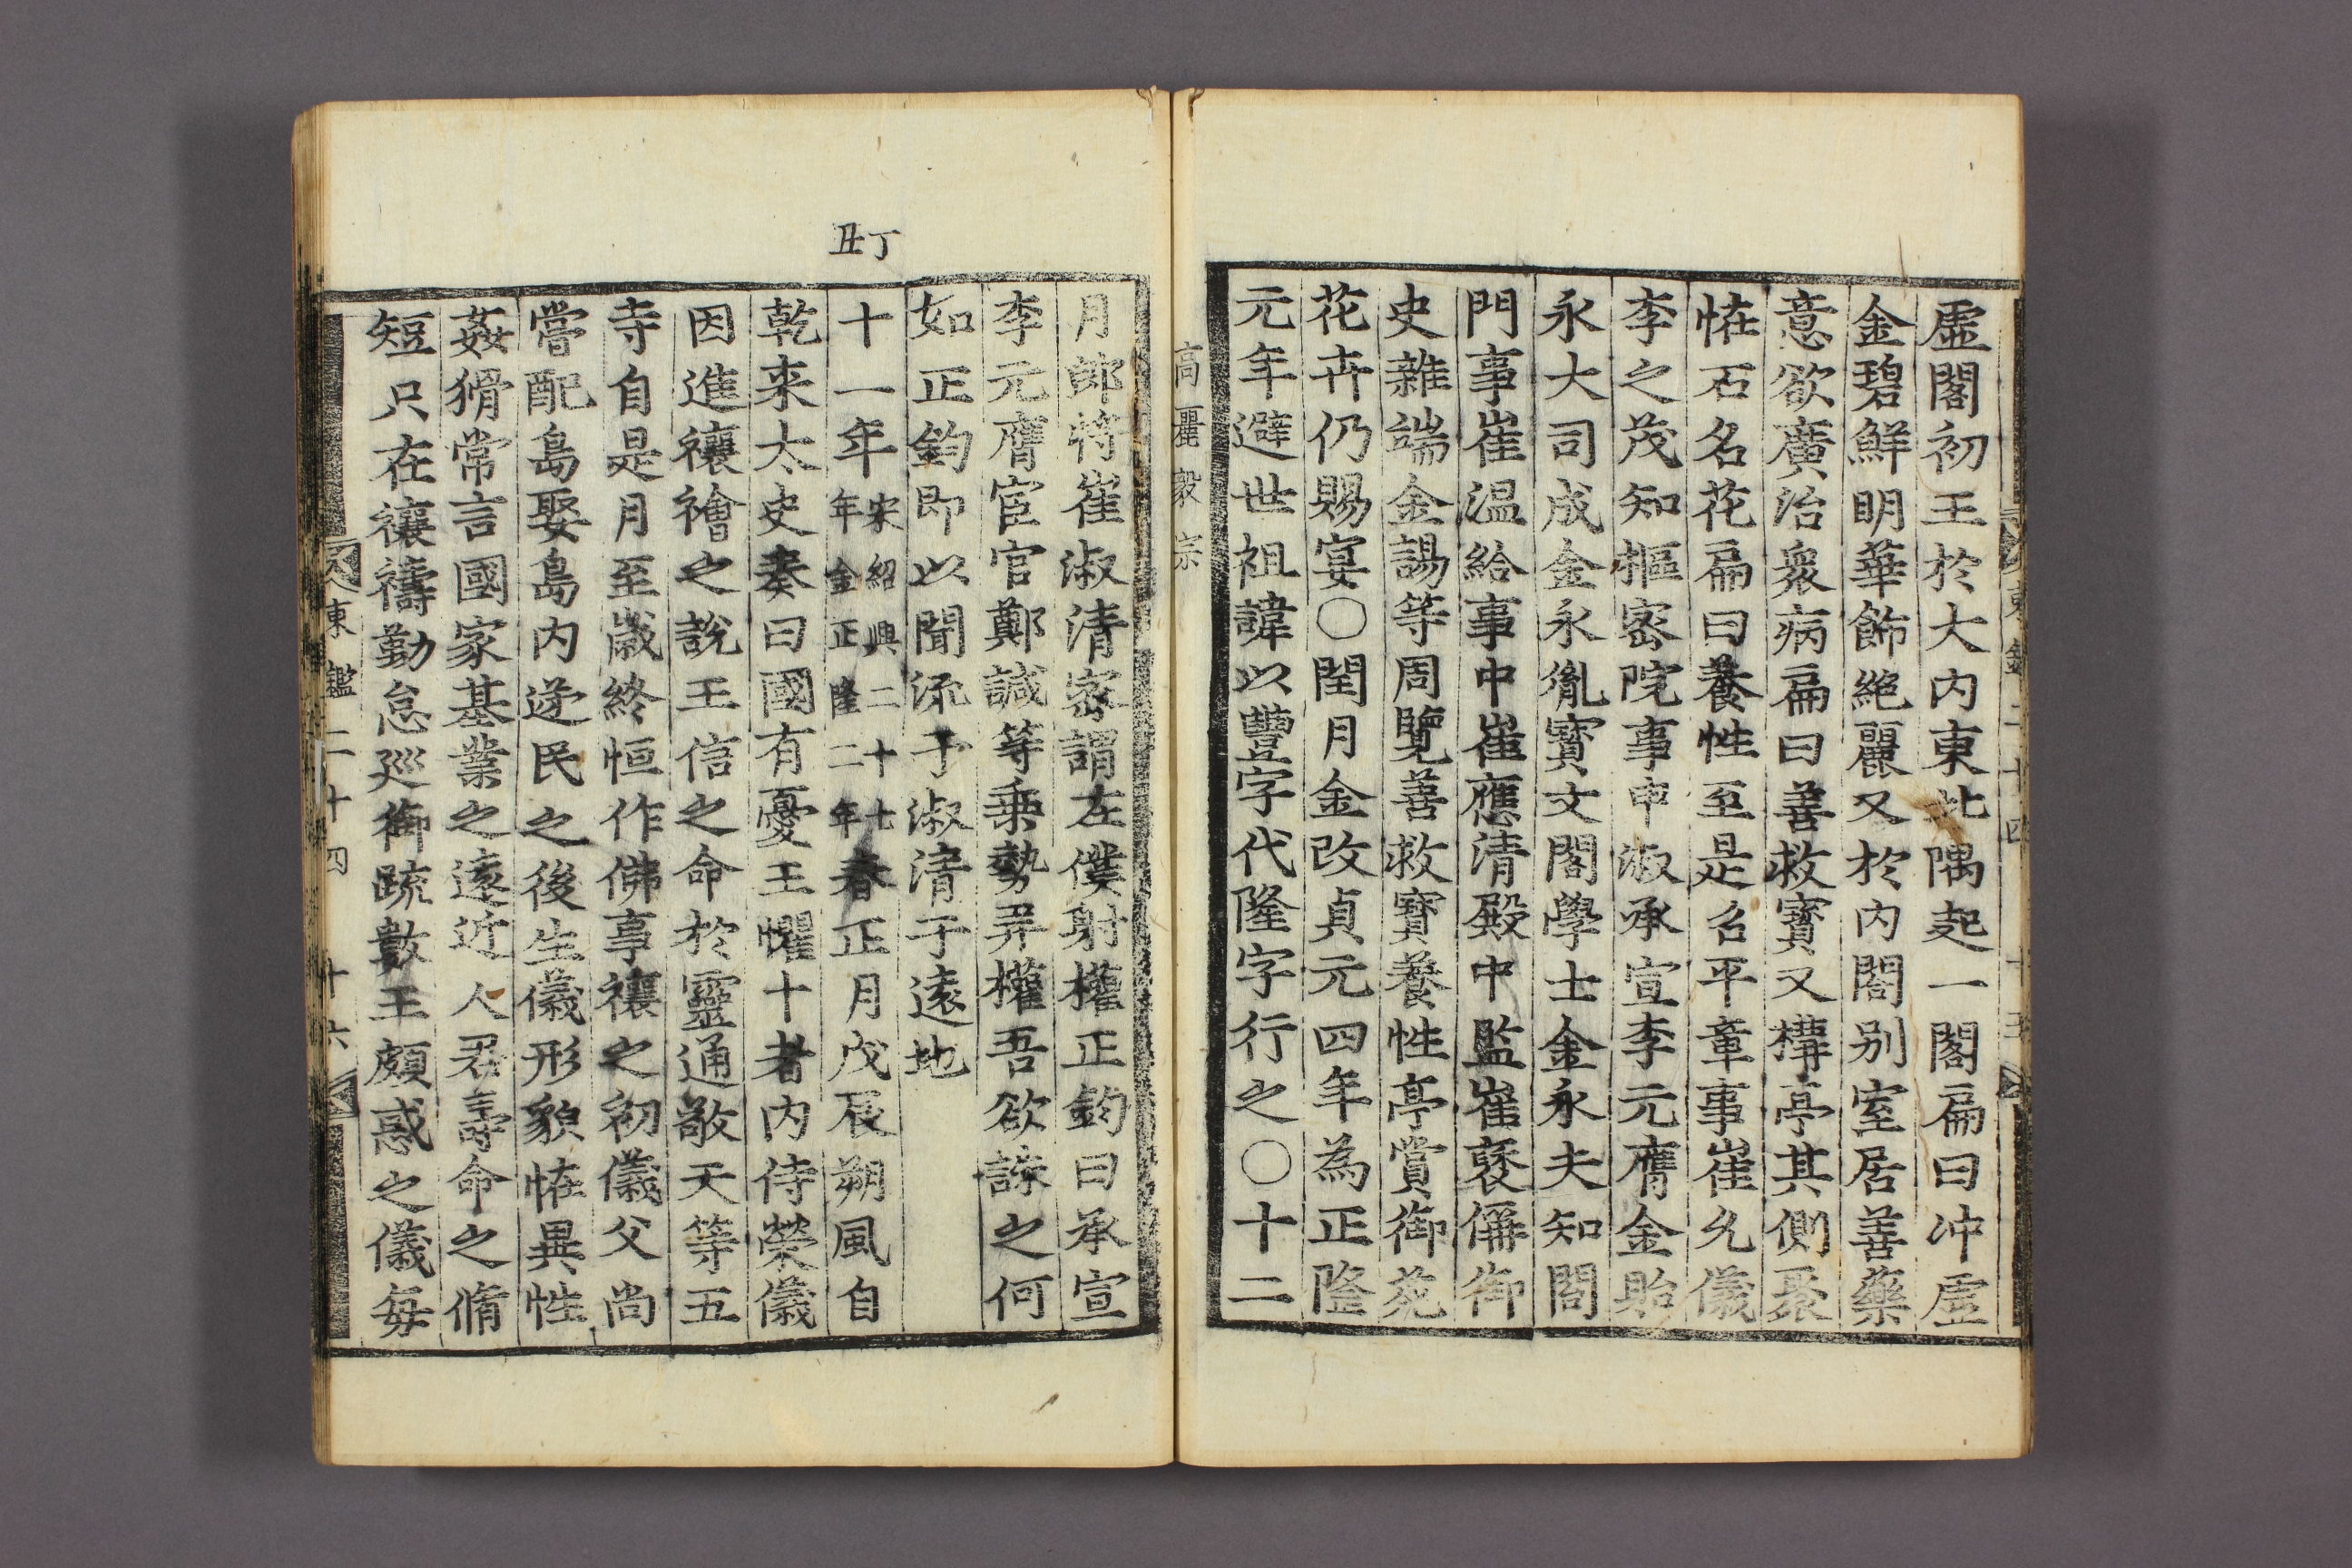 虛閣初王於大内東北隅起一閣扁曰冲虛
金碧鮮明華飾絶麗又於内閤别室居善藥
意欲廣治衆病扁曰善救寶又構亭其側聚
恠石名花扁曰養性至是召平章事崔允儀
李之茂知樞密院事申淑承宣李元膺金貽
永大司成金永胤寳文閣學士金永夫知閤
門事崔温給事中崔應清殿中監崔裒偁御
史雜端金諹等周覽善救寳養性亭賞御苑
花卉仍賜宴○閏月金改貞元四年為正隆
元年避世祖諱以豐字代隆字行之○十二
高麗毅宗
月郎將崔淑清密謂左僕射權正鈞曰承宣
李元膺宦官鄭諴等乗勢弄權吾欲諫之何
如正鈞即以聞流于淑清于遠地
丁丑
十一年宋紹興二十七年金正隆二年春正月戊辰朔風自
乾来太史奏曰國有憂王懼卜者内侍榮儀
因進禳禬之說王信之命於靈通敬天等五
寺自是月至歲終恒作佛事禳之初儀父尚
嘗配島娶島内逆民之後生儀形貌恠異性
姦猾常言國家基業之遠近人君壽命之脩
短只在禳禱勤怠廵御疏數王頗惑之儀每
東鑑二十四 十六